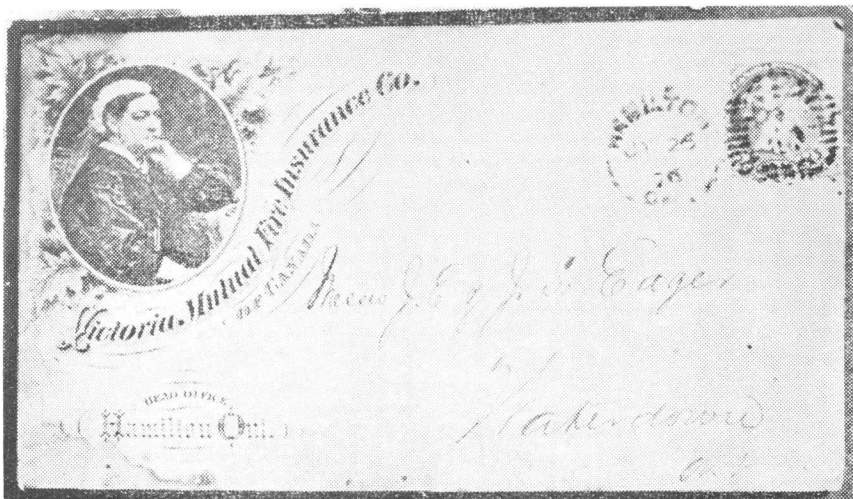 Victoria Mutual Fire Insurance Co.
OF CANADA
HEAD OFFICE
Hamilton Ont.
HAMILTON
25
Messrs J. E. & J. Eager
Waterdown
Ont